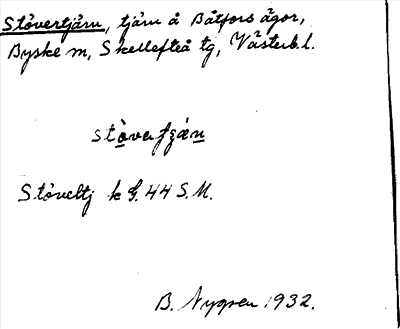 Stövertjärn, tjärn å Båtfors ägor,
Byske sn, Skellefteå tg, Västerb. l.
Stöveltj k G. 44 S.M.
B. Nygren 1932.